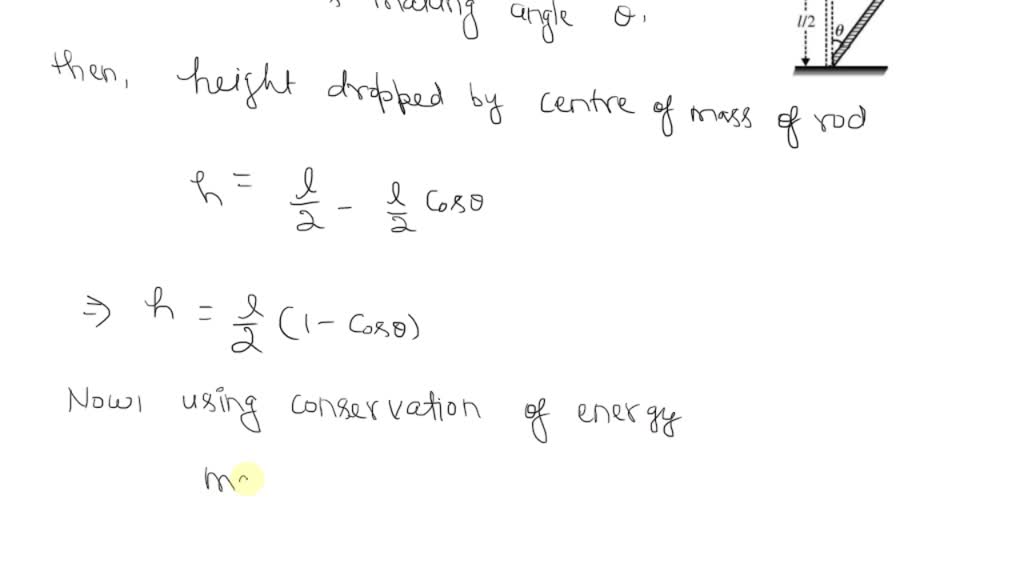 making angle θ.
l/2
θ
then, height dropped by centre of mass of rod
h = l/2 - l/2 Cosθ
⇒ h = l/2 (1 - Cosθ)
Now, using conservation of energy
m